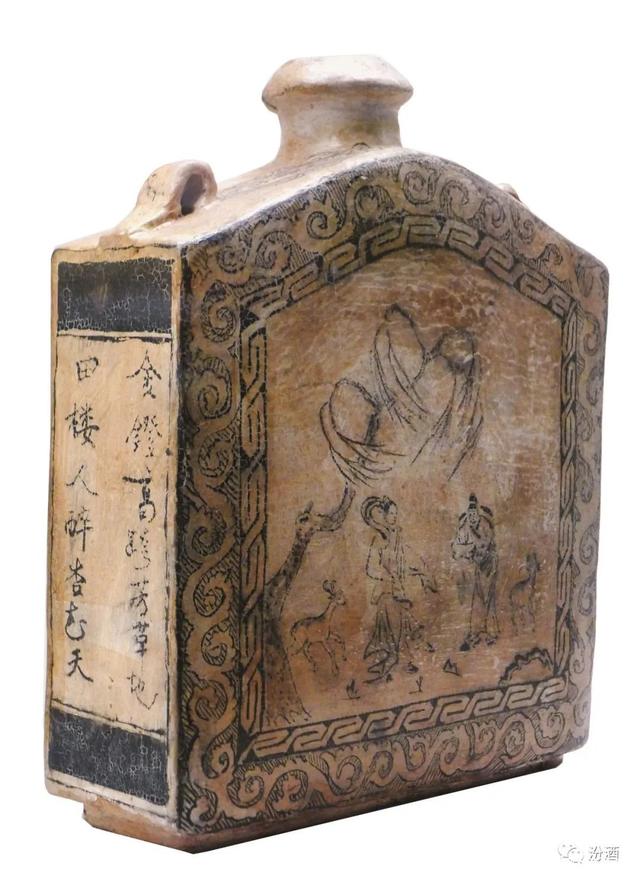 金鐙馬芳草地
田楼人醉杏花天
汾酒